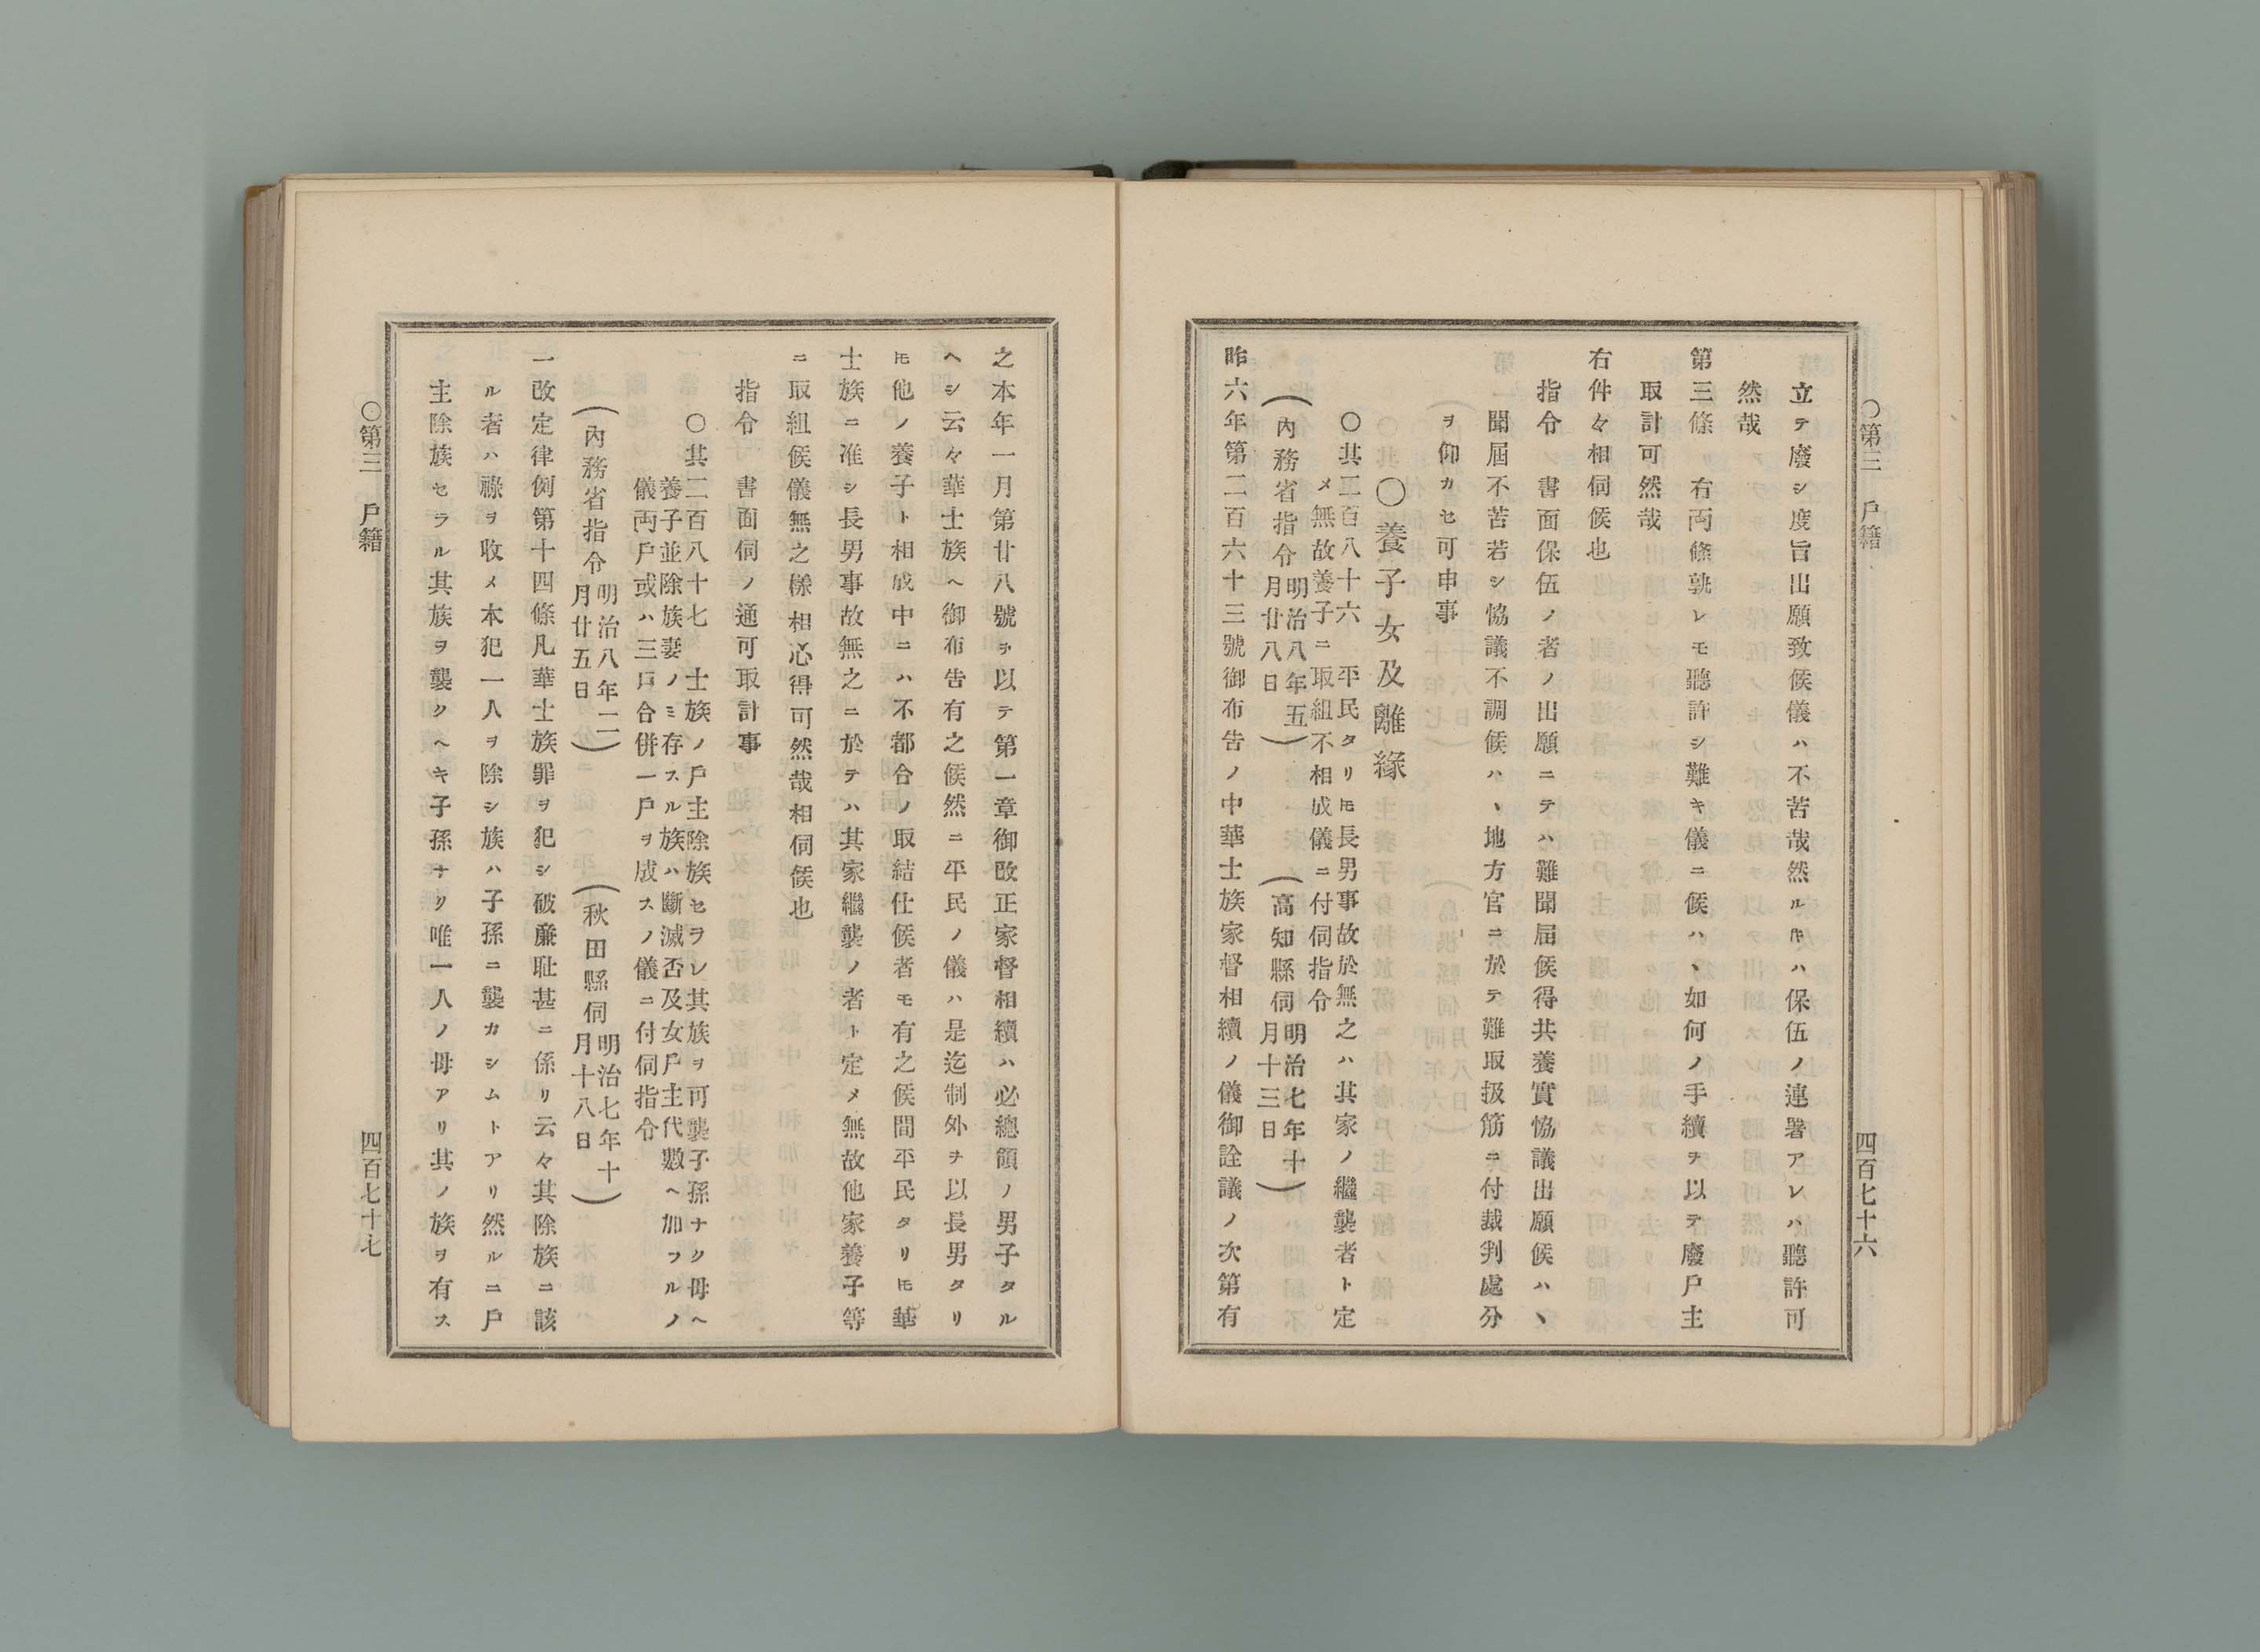 〇第三　戶籍
四百七十六
立テ廢シ度旨出願致候儀ハ不苦哉然ルㇳキハ保伍ノ連署アレハ聽許可
然哉
第三條　右兩條孰レモ聽許シ難キ儀ニ候ハヽ如何ノ手續ヲ以テ廢戶主
取計可然哉
右件々相伺候也
指令　書面保伍ノ者ノ出願ニテハ難聞屆候得共養實恊議出願候ハヽ
聞屆不苦若シ恊議不調候ハヽ地方官ニ於テ難取扱筋ニ付裁判處分
ヲ仰カセ可申事
〇養子女及離緣
〇其二百八十六　平民タリㇳモ長男事故於無之ハ其家ノ繼襲者ト定
メ無故養子ニ取組不相成儀ニ付伺指令
(內務省指令明治八年五月廿八日)　(高知縣伺明治七年十月十三日)
昨六年第二百六十三號御布告ノ中華士族家督相續ノ儀御詮議ノ次第有
之本年一月第廿八號ヲ以テ第一章御改正家督相續ハ必總領ノ男子タル
ヘシ云々華士族ヘ御布告有之候然ニ平民ノ儀ハ是迄制外ヲ以長男タリ
ㇳモ他ノ養子ト相成中ニハ不都合ノ取結仕候者モ有之候間平民タリㇳモ華
士族ニ准シ長男事故無之ニ於テハ其家繼襲ノ者ト定メ無故他家養子等
ニ取組候儀無之樣相心得可然哉相伺候也
指令　書面伺ノ通可取計事
〇其二百八十七　士族ノ戶主除族セラレ其族ヲ可襲子孫ナク母ヘ
養子並除族妻ノミ存スル族ハ斷滅否及女戶主代數ヘ加フルノ
儀兩戶或ハ三戶合併一戶ヲ成スノ儀ニ付伺指令
(內務省指令明治八年二月廿五日)　(秋田縣伺明治七年十月十八日)
一改定律例第十四條凡華士族罪ヲ犯シ破廉耻甚ニ係リ云々其除族ニ該
ル者ハ祿ヲ收メ本犯一人ヲ除シ族ハ子孫ニ襲カシムトアリ然ルニ戶
主除族セラル其族ヲ襲クヘキ子孫ナク唯一人ノ母アリ其ノ族ヲ有ス
〇第三　戶籍
四百七十七